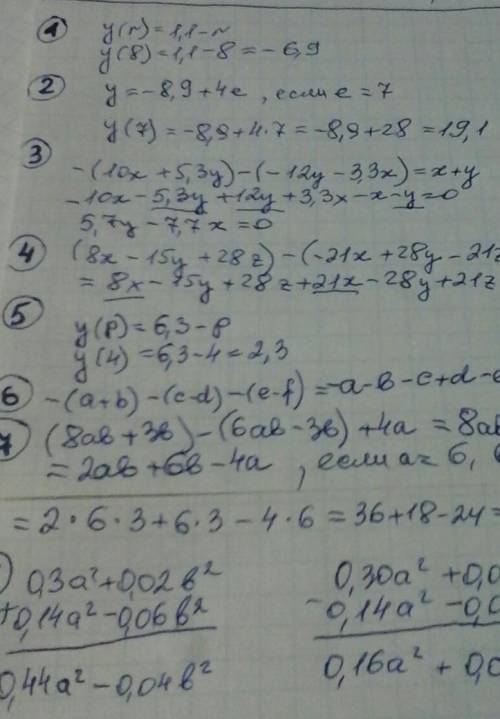 1 y(r)=1,1-r
y(8)=1,1-8=-6,9
2 y=-8,9+4e, если e=7
y(7)=-8,9+4·7=-8,9+28=19,1
3 -(10x+5,3y)-(-12y-3,3x)=x+y
-10x-5,3y+12y+3,3x-x-y=0
5,7y-7,7x=0
4 (8x-15y+28z)-(-21x+28y-21z
=8x-15y+28z+21x-28y+21z
5 y(p)=6,3-p
y(4)=6,3-4=2,3
6 -(a+b)-(c-d)-(e-f)=-a-b-c+d-e
7 (8ab+3b)-(6ab-3b)+4a=8ab
=2ab+6b-4a, если a=6,
=2·6·3+6·3-4·6=36+18-24=
0,3a²+0,02b² 0,30a²+0,0
+0,14a²-0,06b² -0,14a²-0,0
0,44a²-0,04b² 0,16a²+0,0